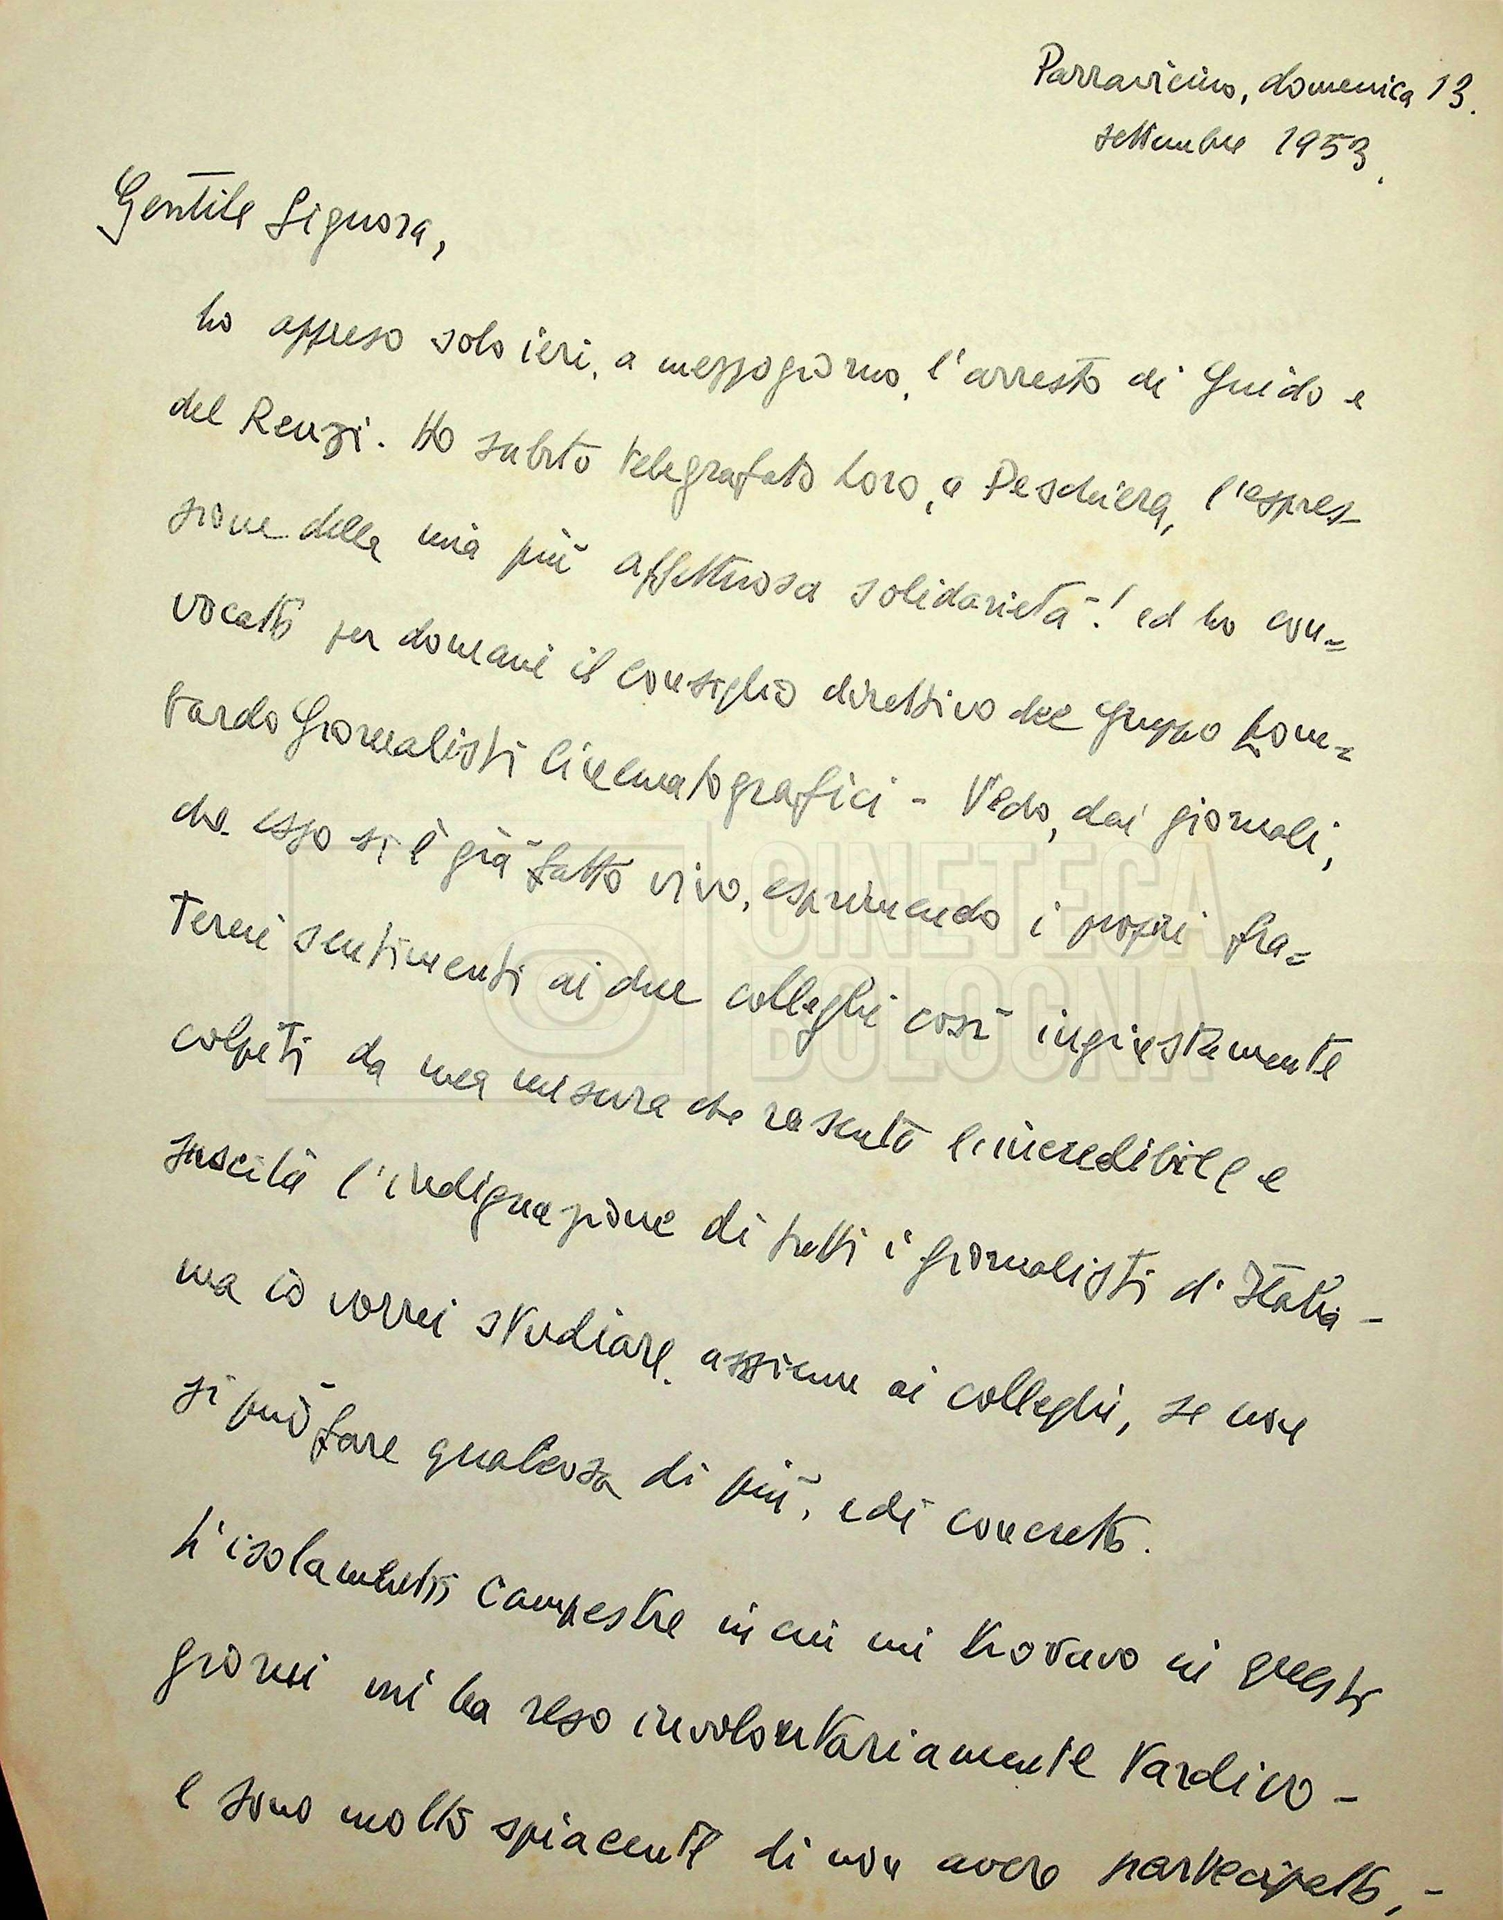 Parravicino, domenica 13.
settembre 1953.
Gentile Signora,
ho appreso solo ieri, a mezzogiorno, l'arresto di Guido e
del Renzi. Ho subito telegrafato loro, a Peschiera, l'espres-
sione della mia più affettuosa solidarietà! ed ho con=
vocato per domani il consiglio direttivo del Gruppo Lom=
bardo Giornalisti Cinematografici - Vedo, dai giornali,
che esso si è già fatto vivo, esprimendo i propri fra=
terni sentimenti ai due colleghi così ingiustamente
colpiti da una misura che rasenta l'incredibile e
suscita l'indignazione di tutti i giornalisti d'Italia -
ma io vorrei studiare, assieme ai colleghi, se non
si può fare qualcosa di più, e di concreto.
L'isolamento campestre in cui mi trovavo in questi
giorni mi ha reso involontariamente tardivo -
e sono molto spiacente di non avere partecipato, -
CINETECA
BOLOGNA